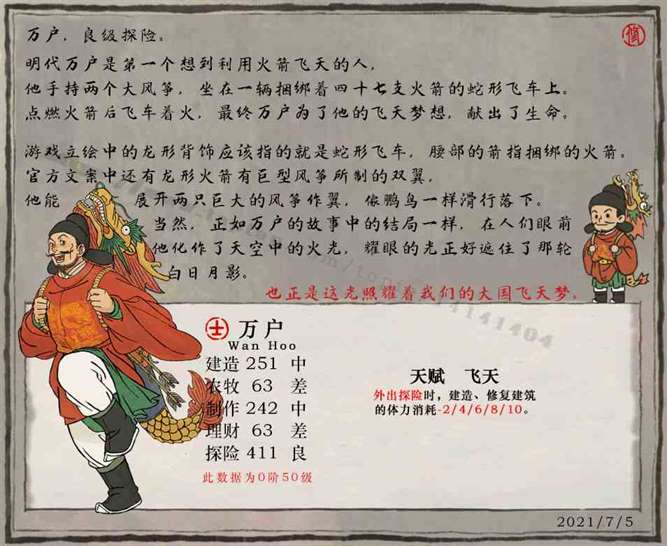 万户，良级探险。
修
明代万户是第一个想到利用火箭飞天的人，
他手持两个大风筝，坐在一辆捆绑着四十七支火箭的蛇形飞车上。
点燃火箭后飞车着火，最终万户为了他的飞天梦想，献出了生命。
游戏立绘中的龙形背饰应该指的就是蛇形飞车，腰部的箭指捆绑的火箭。
官方文案中还有龙形火箭有巨型风筝所制的双翼，
他能展开两只巨大的风筝作翼，像鹏鸟一样滑行落下。
当然，正如万户的故事中的结局一样，在人们眼前
他化作了天空中的火光，耀眼的光正好遮住了那轮
白日月影。
也正是这光照耀着我们的大国飞天梦。
士 万户
Wan Hoo
建造 251 中
农牧 63 差
制作 242 中
理财 63 差
探险 411 良
此数据为0阶50级
天赋 飞天
外出探险时，建造、修复建筑
的体力消耗-2/4/6/8/10。
2021/7/5